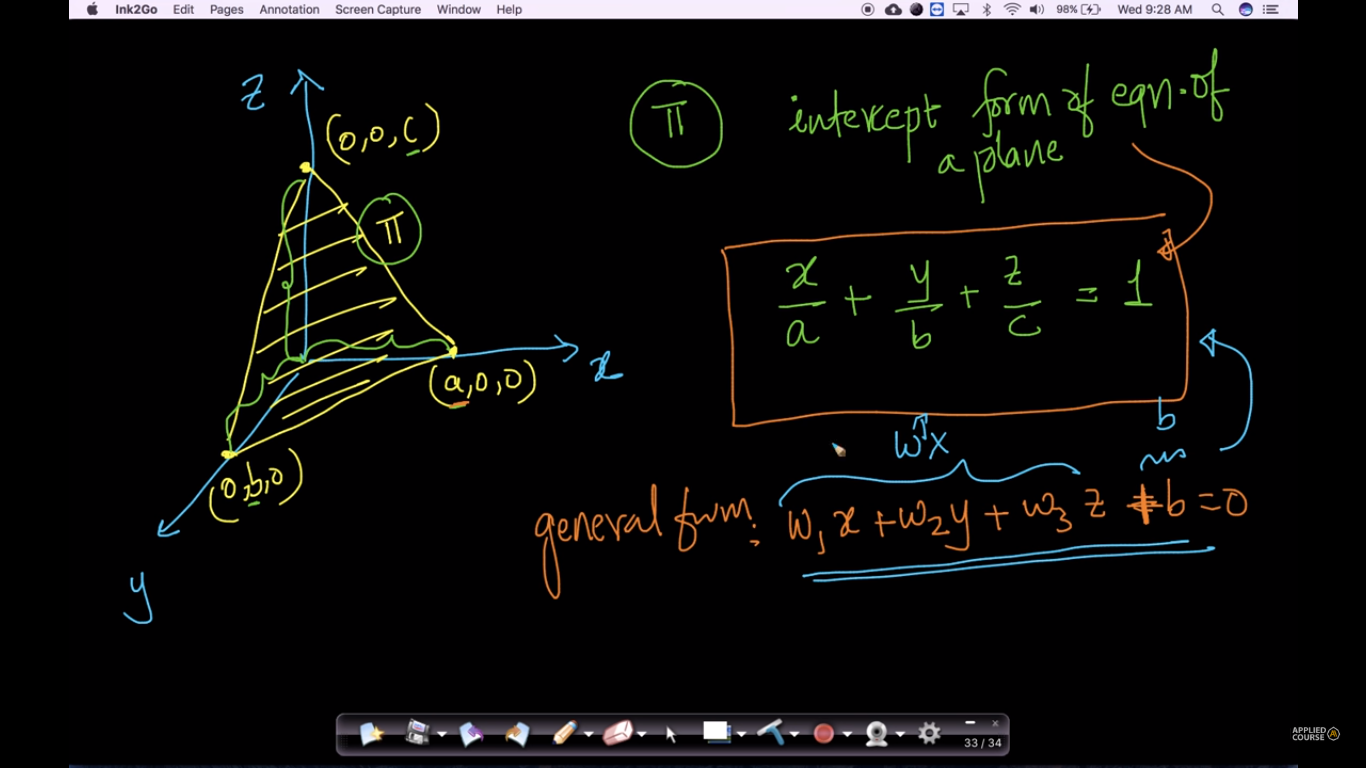 Ink2Go Edit Pages Annotation Screen Capture Window Help 98% Wed 9:28 AM
z
(0,0,c)
π
π
intercept form of eqn. of
a plane
x/a + y/b + z/c = 1
x
(a,0,0)
(0,b,0)
y
wᵀx
b
general form: w₁x + w₂y + w₃z + b = 0
33 / 34
APPLIED
COURSE